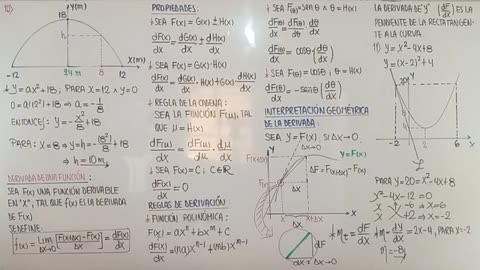 12)
y(m)
18
h
x(m)
-12
24 m
8
12
y = ax² + 18; PARA x=12 ∧ y=0
0 = a(12²) + 18 ⇒ a = -1/8
ENTONCES: y = -x²/8 + 18
PARA: x=8 ⇒ y=h = -(8²)/8 + 18
⇒ h = 10 m
DERIVADA DE UNA FUNCIÓN:
SEA F(x) UNA FUNCIÓN DERIVABLE
EN "X", TAL QUE f(x) ES LA DERIVADA
DE F(x)
SE DEFINE:
f(x) = Lim Δx→0 [F(x+Δx) - F(x)]/Δx = dF(x)/dx
PROPIEDADES:
SEA F(x) = G(x) ± H(x)
dF(x)/dx = dG(x)/dx ± dH(x)/dx
SEA F(x) = G(x) · H(x)
dF(x)/dx = dG(x)/dx · H(x) + G(x) · dH(x)/dx
REGLA DE LA CADENA:
SEA LA FUNCIÓN F(u), TAL
QUE u = H(x)
dF(u)/dx = dF(u)/du · du/dx
SEA F(x) = C; C ∈ ℝ
dF(x)/dx = 0
REGLAS DE DERIVACIÓN:
FUNCIÓN POLINÓMICA:
F(x) = axⁿ + bxᵐ + C
dF(x)/dx = (na)xⁿ⁻¹ + (mb)xᵐ⁻¹
SEA F(θ) = Senθ ∧ θ = H(x)
dF(θ)/dx = dSenθ/dθ · dθ/dx
dF(θ)/dx = cosθ · (dθ/dx)
SEA F(θ) = cosθ; θ = H(x)
dF(θ)/dx = -senθ (dθ/dx)
INTERPRETACIÓN GEOMÉTRICA
DE LA DERIVADA:
SEA y = F(x), SI Δx→0
Δx→0
y
y = F(x)
ΔF = F(x+Δx) - F(x)
F(x)
Δx
x
x+Δx
X
dF
dx = Δx→0
LA DERIVADA DE "y" (dF/dx) ES LA
PENDIENTE DE LA RECTA TANGEN-
TE A LA CURVA.
11) y = x² - 4x + 8
y = (x-2)² + 4
y
20
-2
2
6
X
PARA y = 20 = x² - 4x + 8
x² - 4x - 12 = 0
x -6 ⇒ x = 6
x +2 ⇒ x = -2
m_t = dF/dx ⇒ m_t = dy/dx = 2x - 4, PARA x = -2
m = -8